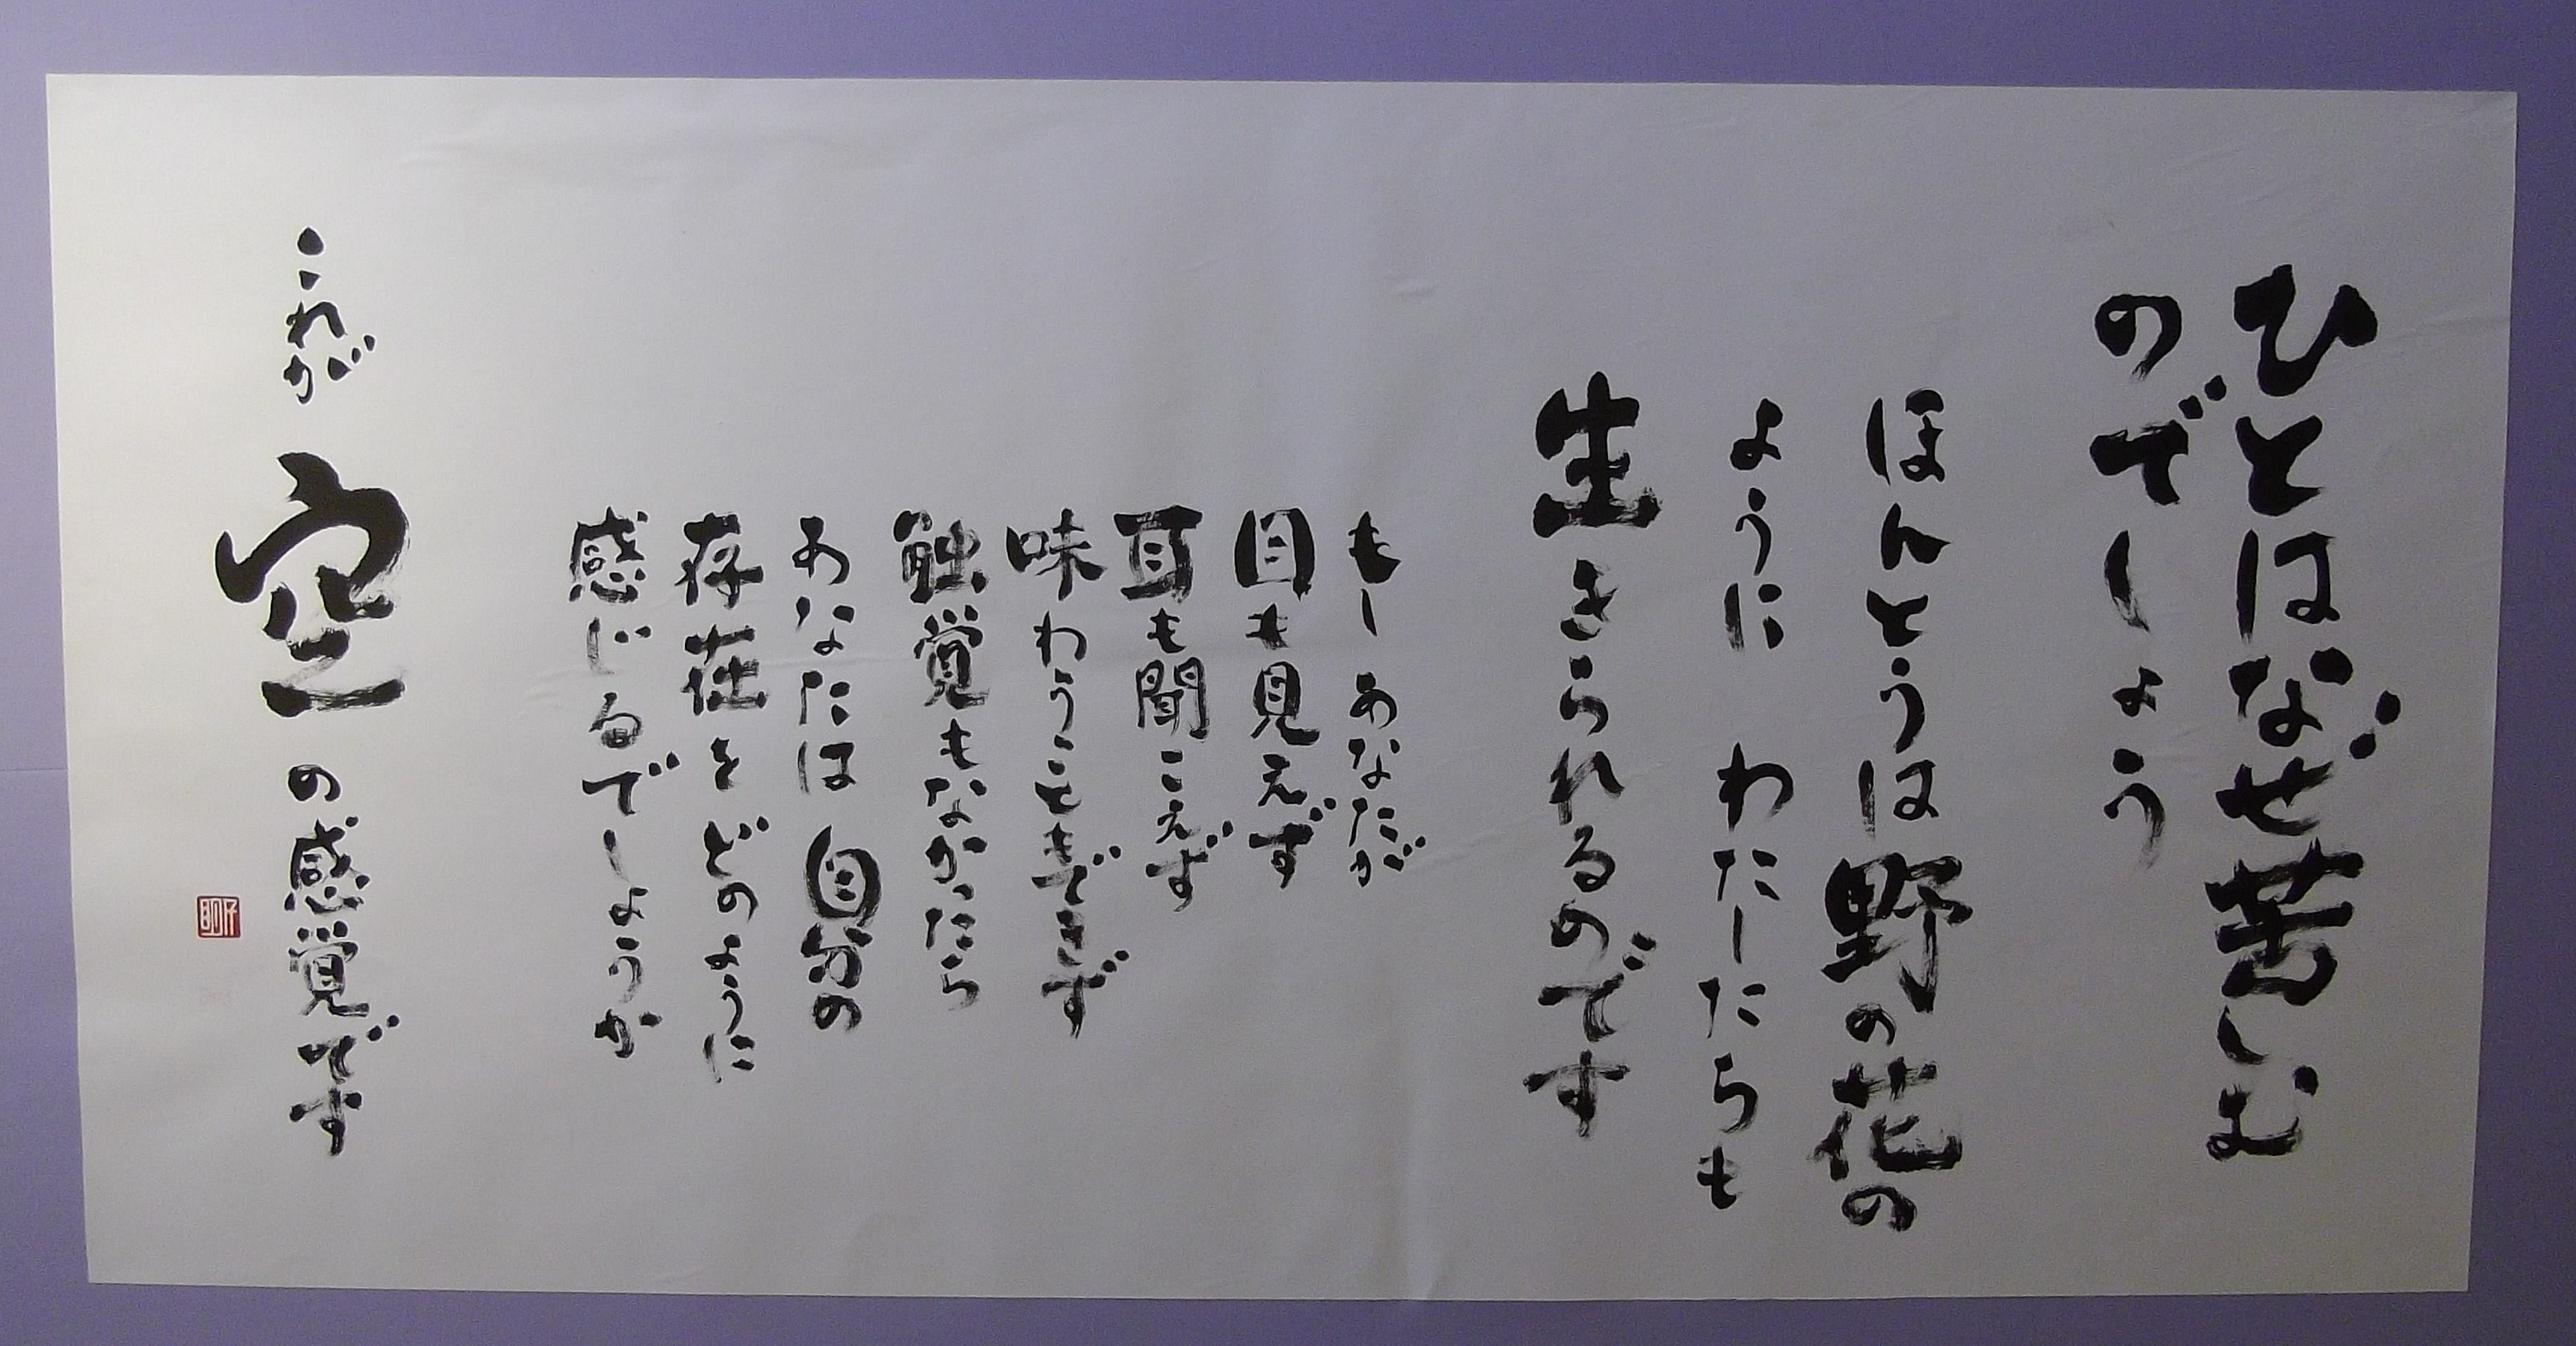 ひとはなぜ苦しむ
のでしょう
ほんとうは野の花の
ように わたしたちも
生きられるのです
もし あなたが
目も見えず
耳も聞こえず
味わうこともできず
触覚もなかったら
あなたは 自分の
存在をどのように
感じるでしょうか
これが 空 の感覚です